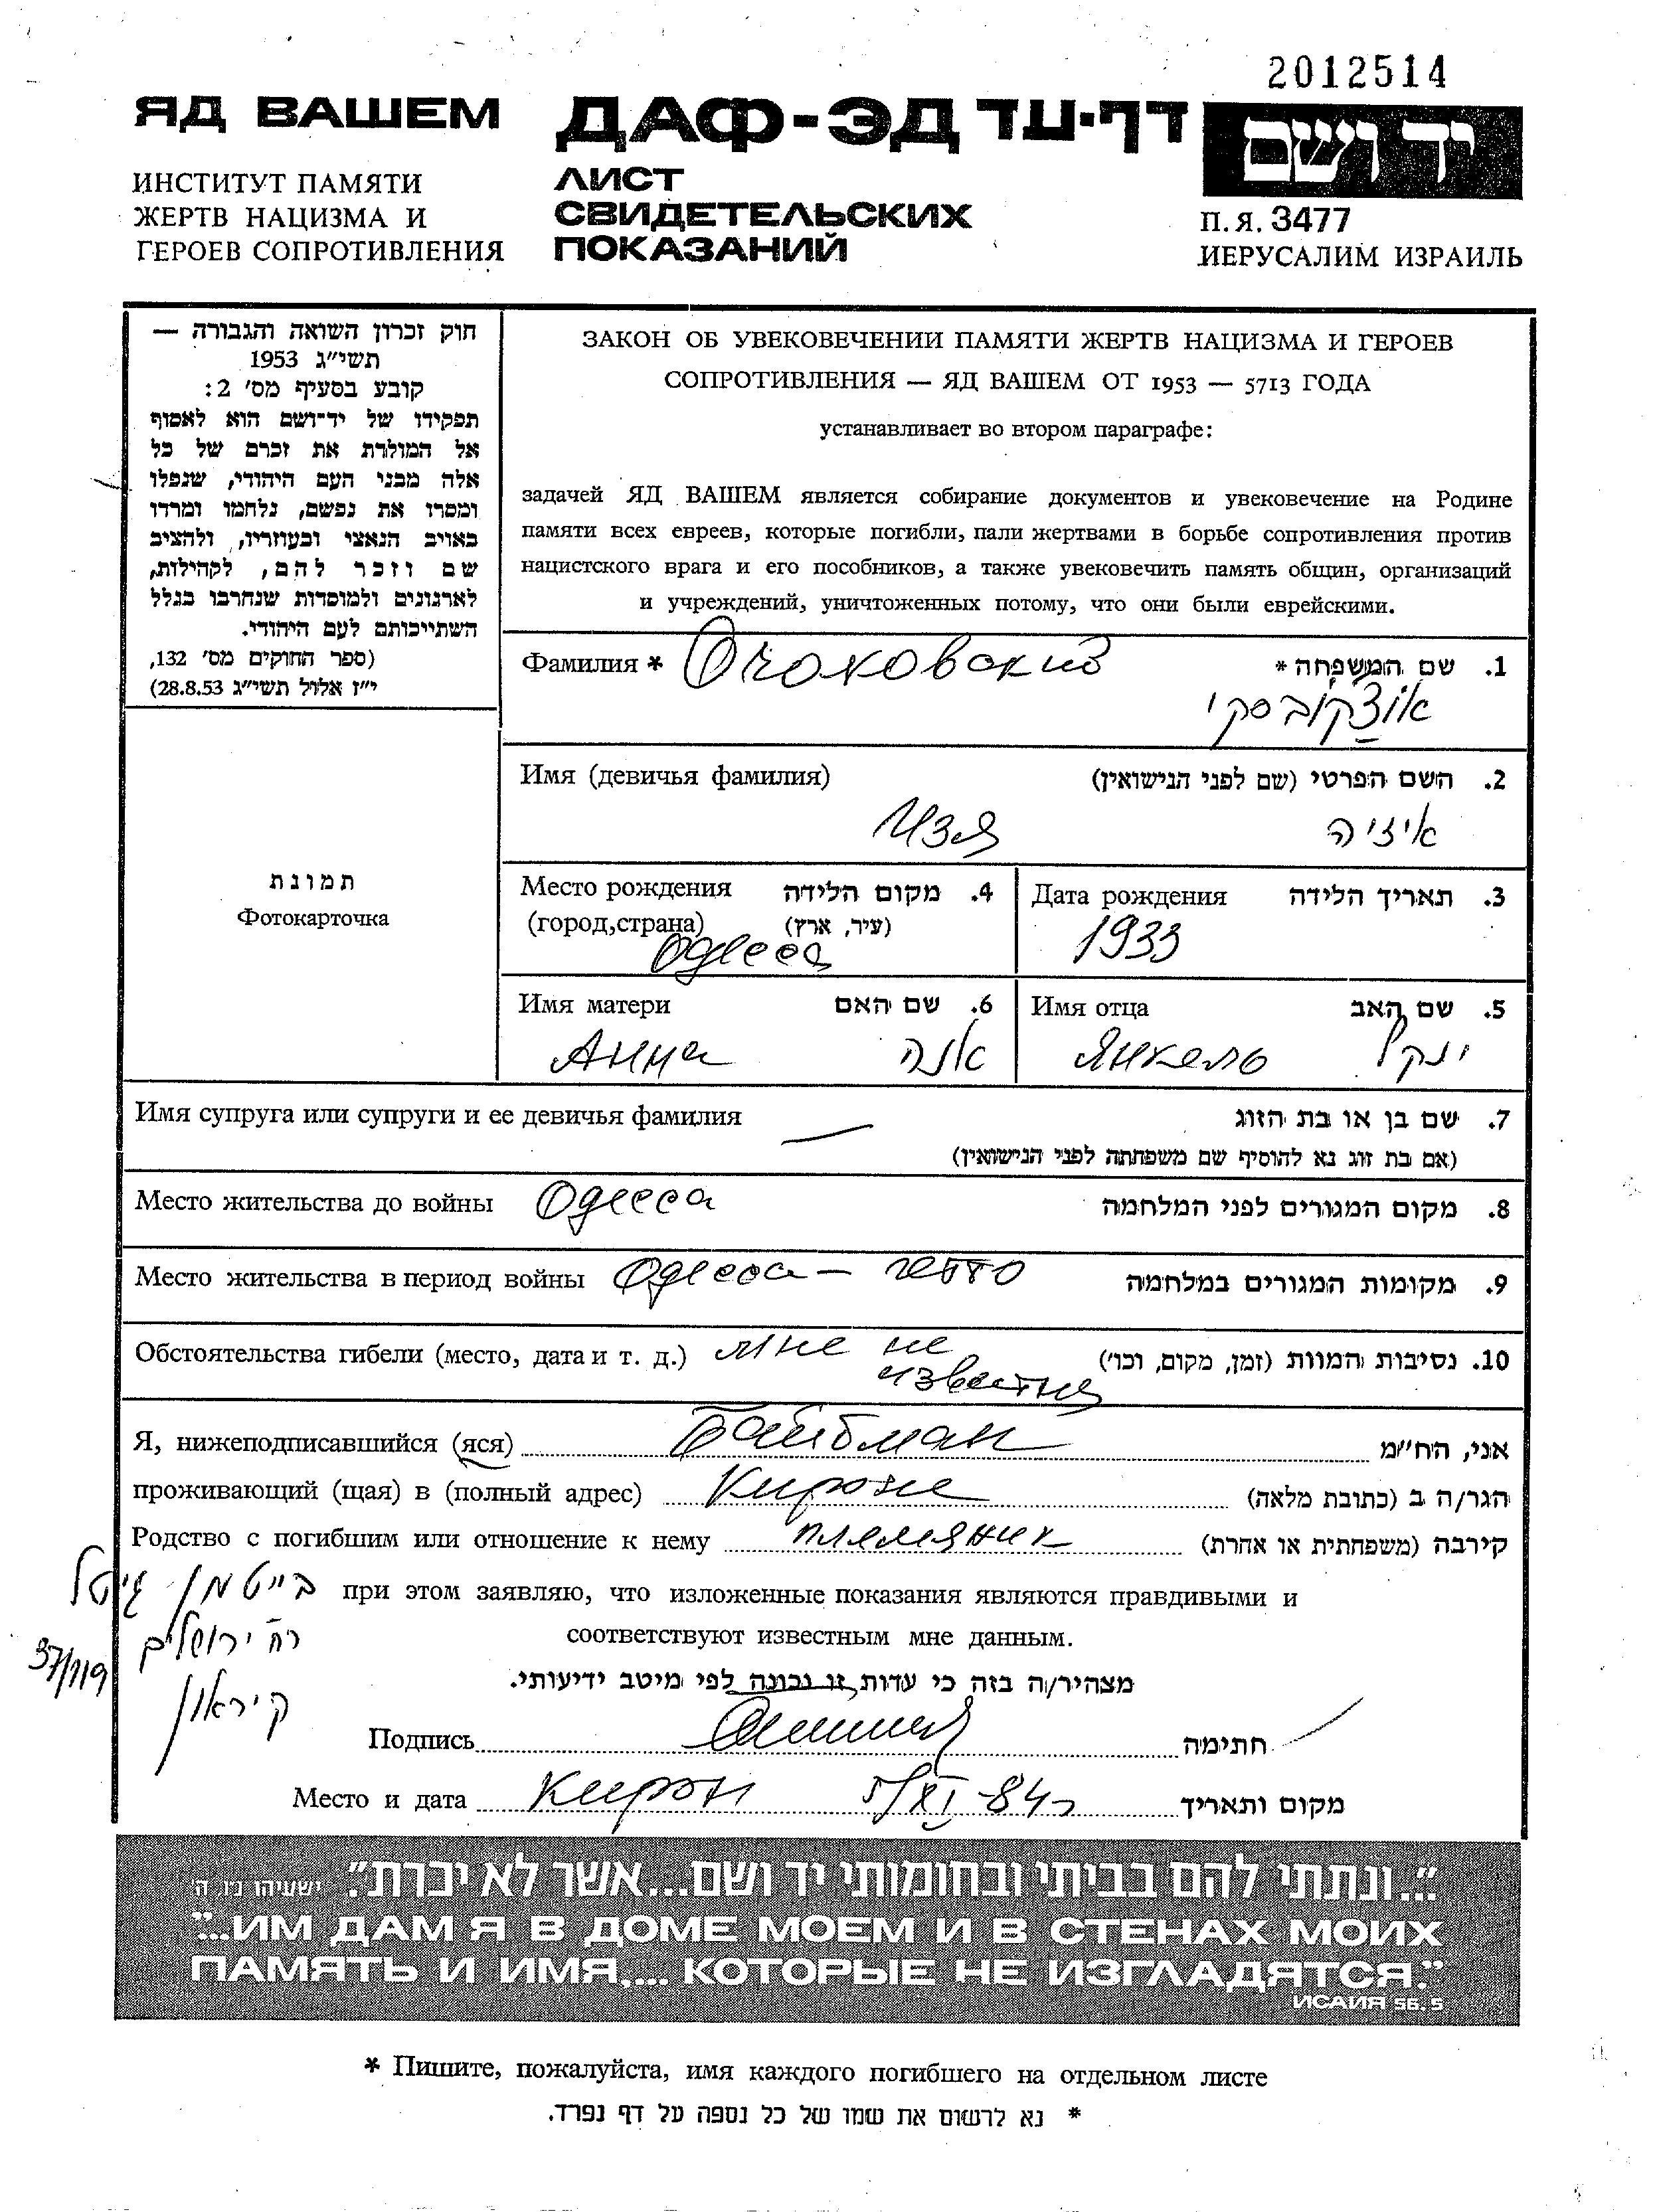 2012514
ЯД ВАШЕМ
ИНСТИТУТ ПАМЯТИ
ЖЕРТВ НАЦИЗМА И
ГЕРОЕВ СОПРОТИВЛЕНИЯ
ДАФ-ЭД דף-עד
ЛИСТ
СВИДЕТЕЛЬСКИХ
ПОКАЗАНИЙ
יד ושם
П.Я. 3477
ИЕРУСАЛИМ ИЗРАИЛЬ
חוק זכרון השואה והגבורה —
תשי״ג 1953
קובע בסעיף מס׳ 2:
תפקידו של יד־ושם הוא לאסוף
אל המולדת את זכרם של כל
אלה מבני העם היהודי, שנפלו
ומסרו את נפשם, נלחמו ומרדו
באויב הנאצי ובעוזריו, ולהציב
שם וזכר להם, לקהילות,
לארגונים ולמוסדות שנחרבו בגלל
השתייכותם לעם היהודי.
(ספר החוקים מס׳ 132,
י״ז אלול תשי״ג 28.8.53)
ЗАКОН ОБ УВЕКОВЕЧЕНИИ ПАМЯТИ ЖЕРТВ НАЦИЗМА И ГЕРОЕВ
СОПРОТИВЛЕНИЯ — ЯД ВАШЕМ ОТ 1953 — 5713 ГОДА
устанавливает во втором параграфе:
задачей ЯД ВАШЕМ является собирание документов и увековечение на Родине
памяти всех евреев, которые погибли, пали жертвами в борьбе сопротивления против
нацистского врага и его пособников, а также увековечить память общин, организаций
и учреждений, уничтоженных потому, что они были еврейскими.
Фамилия * Очаковский 1. שם המשפחה *
אוצ'קובסקי
Имя (девичья фамилия) 2. השם הפרטי (שם לפני הנישואין)
Изя איזיה
תמונת
Фотокарточка
Место рождения 4. מקום הלידה
(город,страна) (עיר, ארץ)
Одесса
Дата рождения 3. תאריך הלידה
1933
Имя матери 6. שם האם
Анна אנה
Имя отца 5. שם האב
Янкель ינקל
Имя супруга или супруги и ее девичья фамилия 7. שם בן או בת הזוג
(אם בת זוג נא להוסיף שם משפחתה לפני הנישואין)
Место жительства до войны Одесса 8. מקום המגורים לפני המלחמה
Место жительства в период войны Одесса — гетто 9. מקומות המגורים במלחמה
Обстоятельства гибели (место, дата и т. д.) мне не 10. נסיבות המוות (זמן, מקום, וכו׳)
известна
Я, нижеподписавшийся (яся) Байтман אני, הח״מ
проживающий (щая) в (полный адрес) Кироне הגר/ה ב (כתובת מלאה)
Родство с погибшим или отношение к нему племяник קירבה (משפחתית או אחרת)
בייטמן גיטל
רח ירושלים
37/119
קיראון
при этом заявляю, что изложенные показания являются правдивыми и
соответствуют известным мне данным.
מצהיר/ה בזה כי עדות זו נכונה לפי מיטב ידיעותי.
Подпись חתימה
Место и дата Кирон 5/XI-84г מקום ותאריך
"...ונתתי להם בביתי ובחומותי יד ושם...אשר לא יכרת". ישעיהו נ״ו, ה׳
"...ИМ ДАМ Я В ДОМЕ МОЕМ И В СТЕНАХ МОИХ
ПАМЯТЬ И ИМЯ,... КОТОРЫЕ НЕ ИЗГЛАДЯТСЯ."
ИСАИЯ 56. 5
* Пишите, пожалуйста, имя каждого погибшего на отдельном листе
* נא לרשום את שמו של כל נספה על דף נפרד.